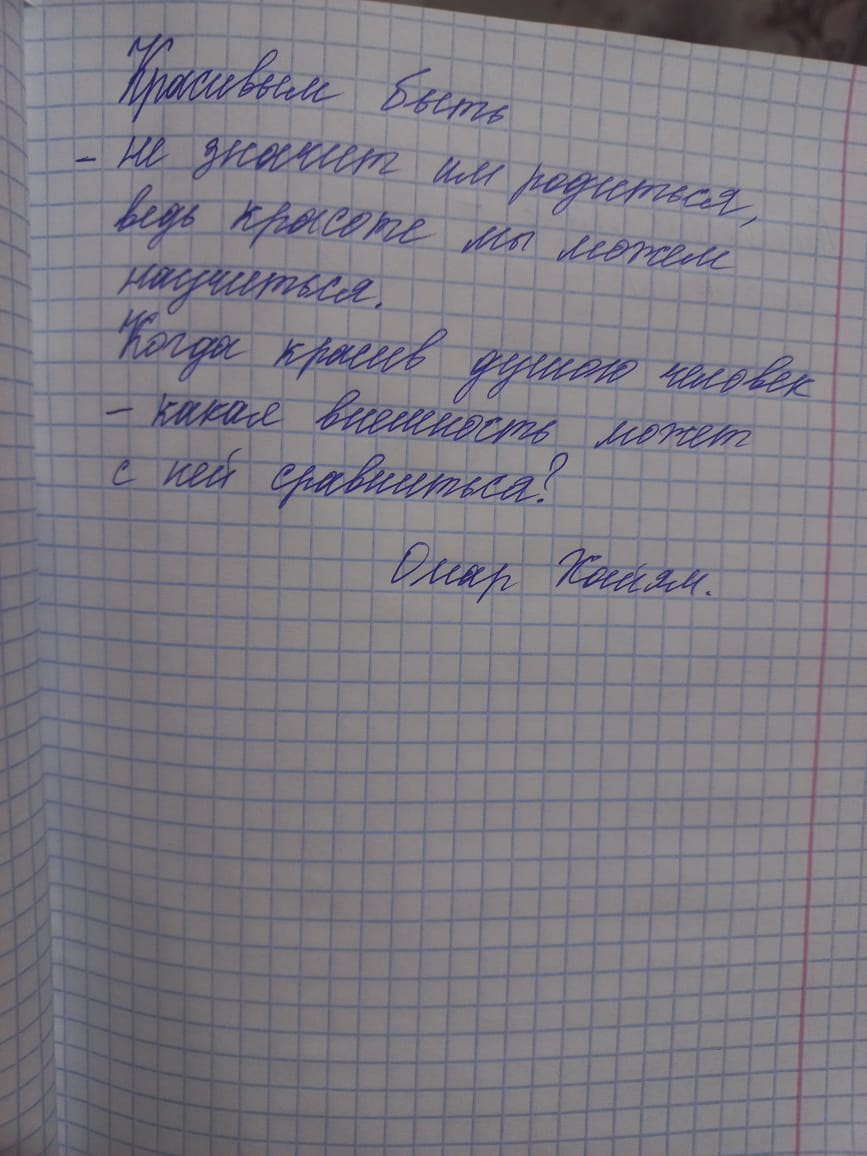 Красивым быть
- не значит им родиться,
ведь красоте мы можем
научиться.
Когда красив душою человек
- какая внешность может
с ней сравниться?
Омар Хайям.